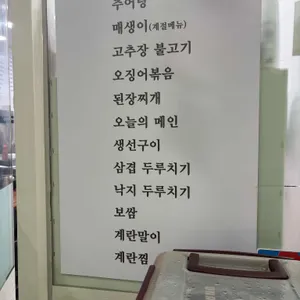 추어탕
매생이(계절메뉴)
고추장 불고기
오징어볶음
된장찌개
오늘의 메인
생선구이
삼겹 두루치기
낙지 두루치기
보쌈
계란말이
계란찜